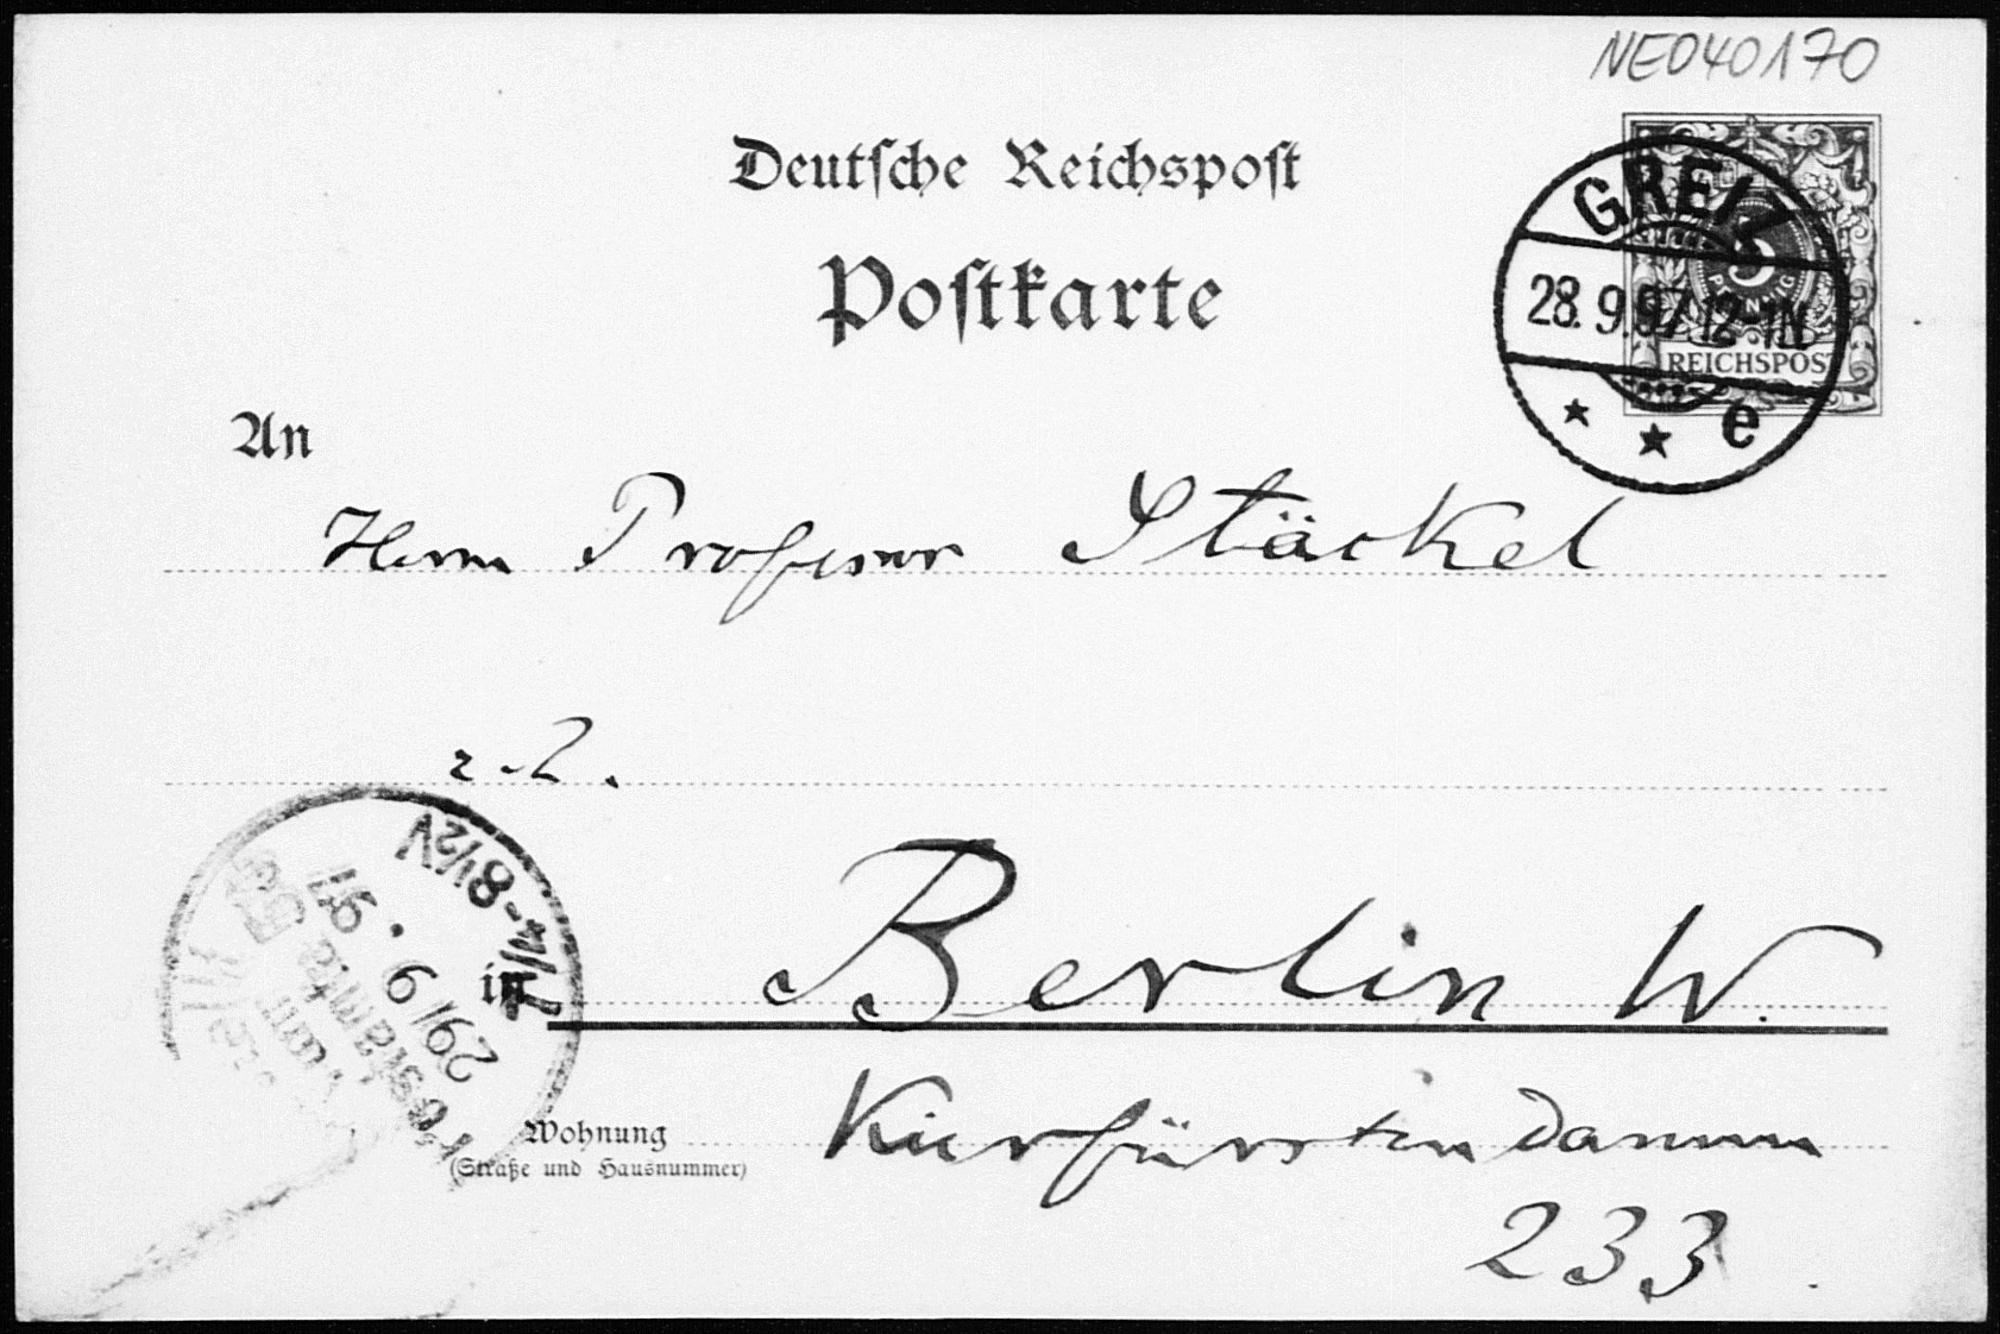 NE040170
Deutsche Reichspost
Postkarte
GREIZ
28. 9. 97 12-1N
5
PFENNIG
REICHSPOST
* * e
An
Herrn Professor Stäckel
z. Z.
7¼-8½V
29/9. 97
in Berlin W.
Wohnung Kurfürstendamm
(Straße und Hausnummer)
233